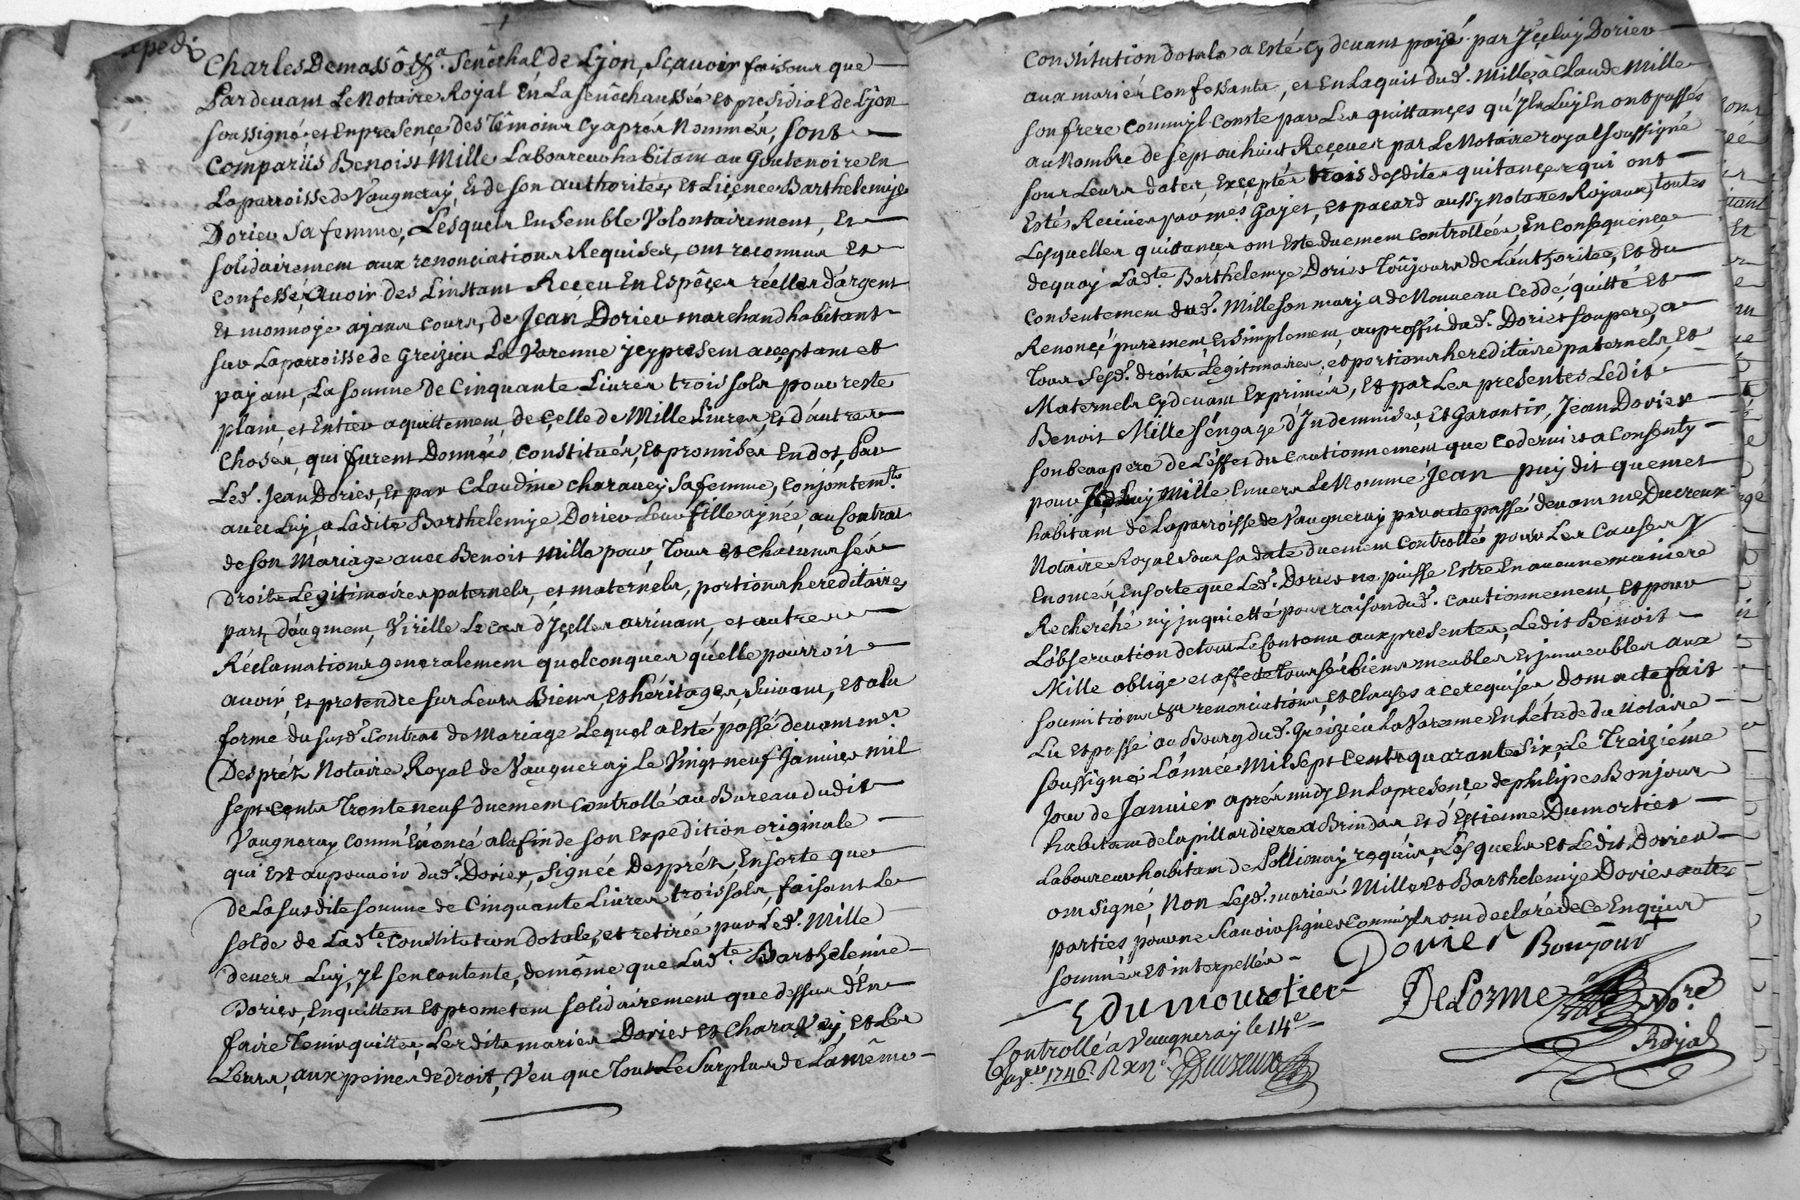 expedié
Charles Demasso &a. Senéchal de Lyon, Sçavoir faisons que
Pardevant Le Notaire Royal En La Senéchaussée et presidial de Lyon
soussigné et En presençe des Témoins Cy aprés Nommés, sont
Comparûs Benoist Mille Laboureur habitant au Goutenoire En
La parroisse de Vaugneray, Et de son authoritée, et Liçence Barthelemye
Dorier sa femme, Lesquels Ensemble Volontairement, Et
solidairement aux renonciations Requises, ont reconnus Et
Confessé, avoir des Linstant Reçeu En Espêçes réelles d'argent
Et monnoye ayant Cours, de Jean Dorier marchand habitant
sur La parroisse de Greizieu La Varenne Jcy present acçeptant et
payant, La somme de Cinquante Livres trois sols pour reste
plain, et Entier aquittement de Çelle de Mille Livres, Et d'autres
Choses, qui furent Donnés, Constitués, Et promises En dot, Par
Led. Jean Dorier, Et par Claudine Charavey sa femme, Conjointemts.
avec Luy, a Ladite Barthelemye Dorier Leur fille aynée, au Contrat
de son Mariage avec Benoit Mille pour Tous Et Chacuns ses
droits Legitimaires paternels, et maternels, portions hereditaires
part, d'augment, Virille Le Cas d'Jçelles arrivant, et autres
Réclamations generalement quelconques qu'elle pourroit
avoir, Et pretendre sur Leurs Biens, Et héritages, suivant, Et a la
forme du susd. Contrat de Mariage Lequel a Esté passé devant me.
Després Notaire Royal de Vaugneray le Vingt neuf Janvier mil
sept Cents Trente neuf duement Controllé au Bureau dudit
Vaugneray Comm'Enoncé a la fin de son Expedition originale
qui Est au pouvoir dud. Dorier, signée Després, En sorte que
de La susdite somme de Cinquante Livres trois sols, faisant Le
solde de Lad.te Constitution dotale, et retirée par Led. Mille
devers Luy, Jl s'en Contente, de même que Lad.te Barthelemie
Dorier, En quittent Et promettent solidairement que dessus d'En
faire Tenir quittes, Lesdits mariés Dorier et Charavey, et Les
Leurs, aux peines de droit, Veu que Tout Le Surplus de La même
Constitution dotale a Esté Cy devant payé par Jçeluy Dorier
aux mariés Confessants, et En Laquit dud. Mille, à Claude Mille
son frere Comm'yl Conste par Les quittançes qu'Jls Luy En ont passés
au Nombre de sept ou huit Reçeues par Le Notaire royal soussigné
sous Leurs dates, Exceptés trois desdites quitançes qui ont
Estés Reçeues par mes Gayet, et pacard aussy Notaires Royaux, toutes
Lesquelles quittances ont Esté duement Controllées En Consequençe
dequoy Lad.te Barthelemye Dorier Toûjours de L'authoritée, Et du
Consentement dud. Mille son mary a de Nouveau Ceddé, quitté Et
Renonçé purement Et simplement, au proffit dud. Dorier son pere, a
Tous sesd. droits Legitimaires, et portions hereditaire paternels, Et
Maternels Cy devant Exprimés, Et par Les presentes Ledit
Benoit Mille s'engage d'Indemniser, Et Garantir, Jean Dorier
son beaupere de L'effet du Cautionnement que Ce dernier a Consenty
pour Luy Mille Envers Le Nommé Jean puydit quemet
habitant de La parroisse de Vaugneray par acte passé devant me Ducreux
Notaire Royal sous sa date duement Controllés pour Les Causes y
Enoncés, En sorte que Led. Dorier ne puisse Estre En aucune maniere
Recherché ny jnquietté pour raison dud. Cautionnement, Et pour
L'observation de tout Le Contenu aux presentes, Ledit Benoit
Mille oblige et affecte Tous ses biens meubles Et jmmeubles aux
soumitions &a renonciations, Et Clauses a Ce requises Dont acte fait
Lu Et passé au Bourg dud. Greizieu La Varenne En L'etude du Notaire
soussigné L'année Mil sept Cents quarante six, Le Treiziéme
Jour de Janvier aprés midy En La presence de philipes Bonjour
habitant de la pillardiere a Brindas Et d'Estienne Dumortier
Laboureur habitant de Pollionay requis, Lesquels et Ledit Dorier
ont signé, Non Lesd. mariés Mille Et Barthelemye Dorier autre
parties pour ne sçavoir signer Comm'jls ont declaré de Ce Enquis
sommés Et interpellés
Dorier Bonjour
E dumourtier DeLorme No.re
Royal
Controllé à Vaugneray le 14e
1746 Ducreux